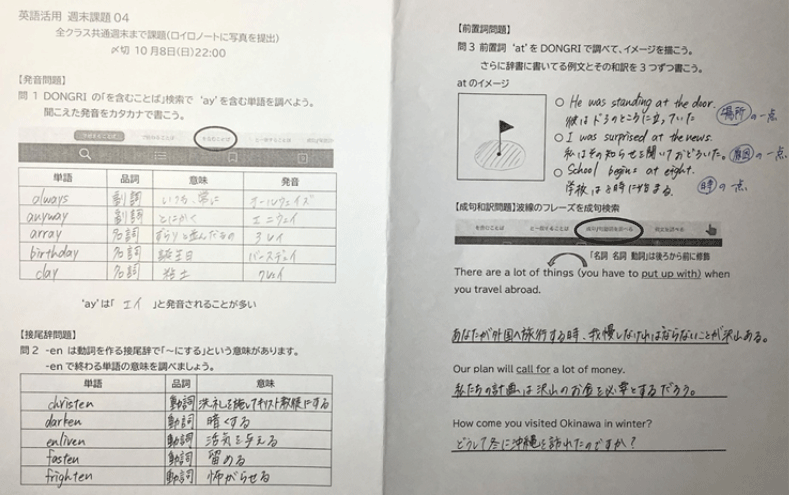 英語活用 週末課題 04
全クラス共通週末まで課題(ロイロノートに写真を提出)
〆切 10月8日(日)22:00
【発音問題】
問1 DONGRI の「を含むことば」検索で 'ay'を含む単語を調べよう。
聞こえた発音をカタカナで書こう。
単語 品詞 意味 発音
always 副詞 いつも、常に オールウェイズ
anyway 副詞 とにかく エニウェイ
array 名詞 ずらりと並んだもの アレイ
birthday 名詞 誕生日 バースデェイ
clay 名詞 粘土 クレイ
'ay'は「 エイ 」と発音されることが多い
【接尾辞問題】
問2 -en は動詞を作る接尾辞で「~にする」という意味があります。
-enで終わる単語の意味を調べましょう。
単語 品詞 意味
christen 動詞 洗礼を施してキリスト教徒にする
darken 動詞 暗くする
enliven 動詞 活気を与える
fasten 動詞 留める
frighten 動詞 怖がらせる
【前置詞問題】
問3 前置詞 'at'をDONGRIで調べて、イメージを描こう。
さらに辞書に書いてある例文とその和訳を3つずつ書こう。
atのイメージ
○ He was standing at the door.
彼はドアのところに立っていた 場所の一点
○ I was surprised at the news.
私はその知らせを聞いておどろいた。 原因の一点
○ School begins at eight.
学校は8時に始まる。 時の一点
【成句和訳問題】波線のフレーズを成句検索
を含むことば と一致することば 成句の例を調べる 例文を調べる
「名詞 名詞 動詞」は後ろから前に修飾
There are a lot of things (you have to put up with) when
you travel abroad.
あなたが外国へ旅行する時、我慢しなければならないことが沢山ある。
Our plan will call for a lot of money.
私たちの計画は沢山のお金を必要とするだろう。
How come you visited Okinawa in winter?
どうして冬に沖縄を訪れたのですか?